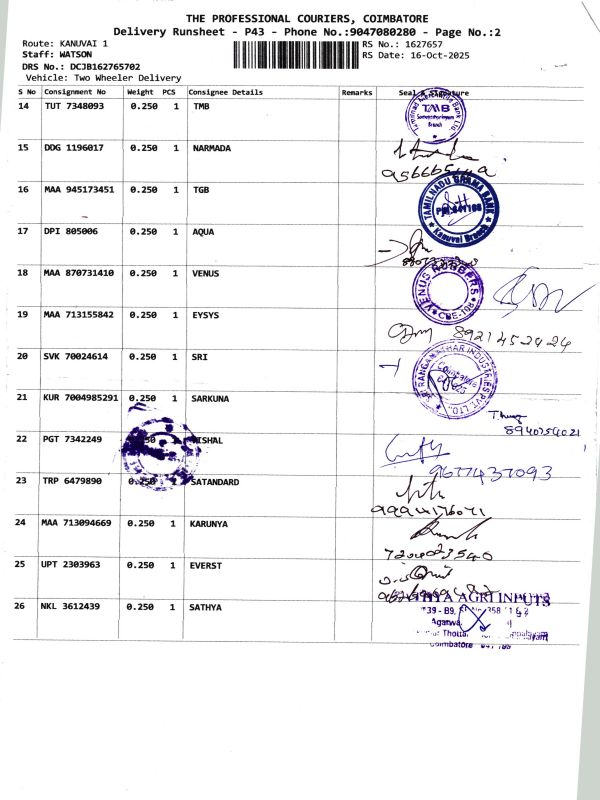 THE PROFESSIONAL COURIERS, COIMBATORE
Delivery Runsheet - P43 - Phone No.:9047080280 - Page No.:2
Route: KANUVAI 1
RS No.: 1627657
Staff: WATSON
RS Date: 16-Oct-2025
DRS No.: DCJB162765702
Vehicle: Two Wheeler Delivery
S No Consignment No Weight PCS Consignee Details Remarks Seal & Signature
14 TUT 7348093 0.250 1 TMB
TMB
Branch
15 DDG 1196017 0.250 1 NARMADA
16 MAA 945173451 0.250 1 TGB
TAMILNADU GRAMA BANK
Kanuvai Branch
17 DPI 805006 0.250 1 AQUA
18 MAA 870731410 0.250 1 VENUS
VENUS RUBBERS
CBE-108
19 MAA 713155842 0.250 1 EYSYS
8921452424
20 SVK 70024614 0.250 1 SRI
SRI RANGANATHAR INDUSTRIES PVT. LTD.
Coimbatore
21 KUR 7004985291 0.250 1 SARKUNA
8940754021
22 PGT 7342249 0.250 1 VISHAL
9677437093
23 TRP 6479890 0.250 1 SATANDARD
24 MAA 713094669 0.250 1 KARUNYA
25 UPT 2303963 0.250 1 EVERST
26 NKL 3612439 0.250 1 SATHYA
AGRI INPUTS
Coimbatore